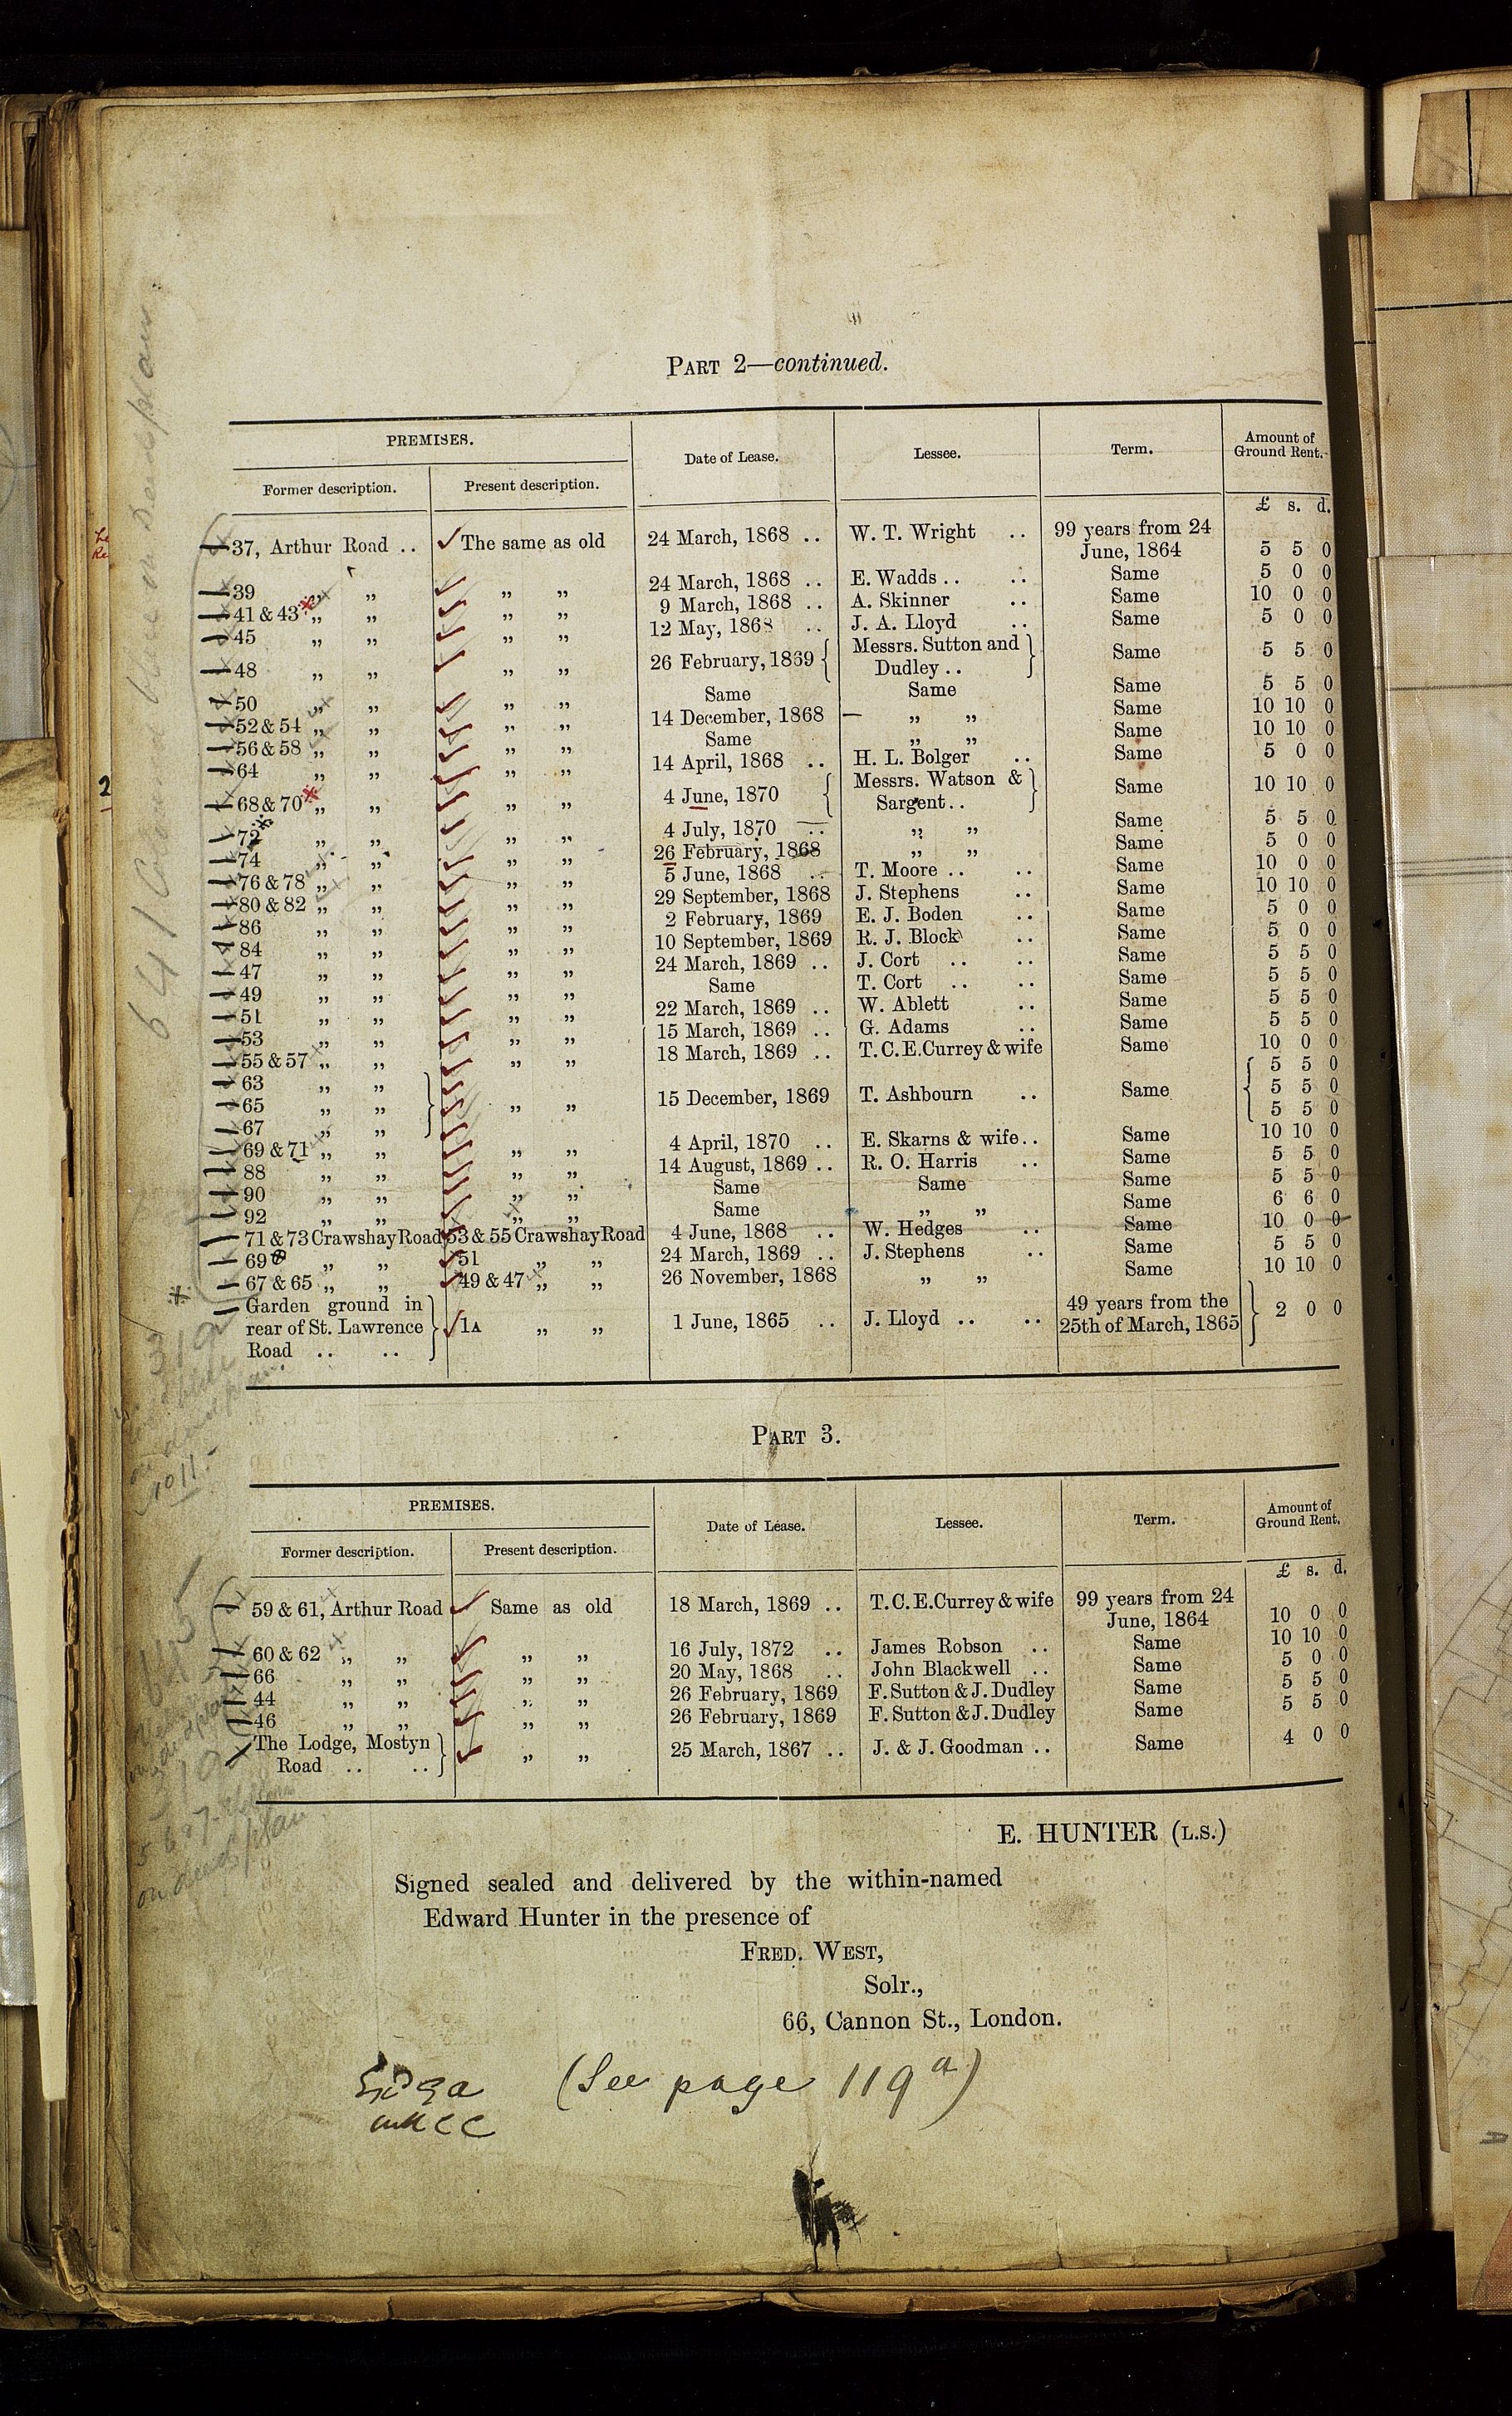 PART 2—continued.
PREMISES. Date of Lease. Lessee. Term. Amount of Ground Rent.
Former description. Present description.
£ s. d.
37, Arthur Road .. The same as old 24 March, 1868 .. W. T. Wright .. 99 years from 24 June, 1864 5 5 0
39 „ „ „ „ 24 March, 1868 .. E. Wadds .. .. Same 5 0 0
41 & 43 „ „ „ „ 9 March, 1868 .. A. Skinner .. Same 10 0 0
45 „ „ „ „ 12 May, 1868 .. J. A. Lloyd .. Same 5 0 0
48 „ „ „ „ 26 February, 1869 Messrs. Sutton and Dudley .. Same 5 5 0
50 „ „ „ „ Same Same Same 5 5 0
52 & 54 „ „ „ „ 14 December, 1868 — „ „ Same 10 10 0
56 & 58 „ „ „ „ Same „ „ Same 10 10 0
64 „ „ „ „ 14 April, 1868 .. H. L. Bolger .. Same 5 0 0
68 & 70 „ „ „ „ 4 June, 1870 Messrs. Watson & Sargent .. Same 10 10 0
72 „ „ „ „ 4 July, 1870 .. „ „ Same 5 5 0
74 „ „ „ „ 26 February, 1868 „ „ Same 5 0 0
76 & 78 „ „ „ „ 5 June, 1868 .. T. Moore .. .. Same 10 0 0
80 & 82 „ „ „ „ 29 September, 1868 J. Stephens .. Same 10 10 0
86 „ „ „ „ 2 February, 1869 E. J. Boden .. Same 5 0 0
84 „ „ „ „ 10 September, 1869 R. J. Block .. Same 5 0 0
47 „ „ „ „ 24 March, 1869 .. J. Cort .. .. Same 5 5 0
49 „ „ „ „ Same T. Cort .. .. Same 5 5 0
51 „ „ „ „ 22 March, 1869 .. W. Ablett .. Same 5 5 0
53 „ „ „ „ 15 March, 1869 .. G. Adams .. Same 5 5 0
55 & 57 „ „ „ „ 18 March, 1869 .. T. C. E. Currey & wife Same 10 0 0
63 „ „ 5 5 0
65 „ „ „ „ 15 December, 1869 T. Ashbourn .. Same 5 5 0
67 „ „ 5 5 0
69 & 71 „ „ „ „ 4 April, 1870 .. E. Skarns & wife .. Same 10 10 0
88 „ „ „ „ 14 August, 1869 .. R. O. Harris .. Same 5 5 0
90 „ „ „ „ Same Same Same 5 5 0
92 „ „ „ „ Same „ „ Same 6 6 0
71 & 73 Crawshay Road 53 & 55 Crawshay Road 4 June, 1868 .. W. Hedges .. Same 10 0 0
69 „ „ 51 „ „ 24 March, 1869 .. J. Stephens .. Same 5 5 0
67 & 65 „ „ 49 & 47 „ „ 26 November, 1868 „ „ Same 10 10 0
Garden ground in 49 years from the
rear of St. Lawrence 1A „ „ 1 June, 1865 .. J. Lloyd .. .. 25th of March, 1865 2 0 0
Road .. ..
PART 3.
PREMISES. Date of Lease. Lessee. Term. Amount of Ground Rent.
Former description. Present description.
£ s. d.
59 & 61, Arthur Road Same as old 18 March, 1869 .. T. C. E. Currey & wife 99 years from 24 June, 1864 10 0 0
60 & 62 „ „ „ „ 16 July, 1872 .. James Robson .. Same 10 10 0
66 „ „ „ „ 20 May, 1868 .. John Blackwell .. Same 5 0 0
44 „ „ „ „ 26 February, 1869 F. Sutton & J. Dudley Same 5 5 0
46 „ „ „ „ 26 February, 1869 F. Sutton & J. Dudley Same 5 5 0
The Lodge, Mostyn Road .. .. „ „ 25 March, 1867 .. J. & J. Goodman .. Same 4 0 0
E. HUNTER (L.S.)
Signed sealed and delivered by the within-named
Edward Hunter in the presence of
FRED. WEST,
Solr.,
66, Cannon St., London.
(See page 119a)